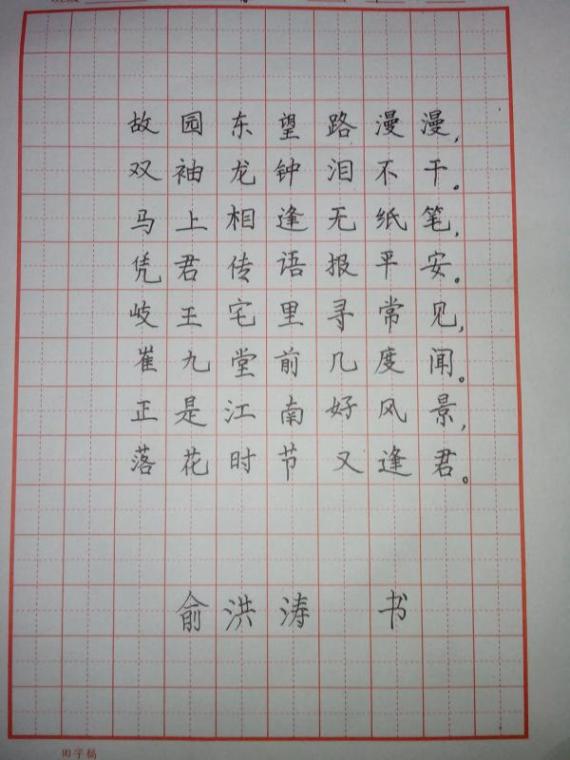 故园东望路漫漫,
双袖龙钟泪不干。
马上相逢无纸笔,
凭君传语报平安。
岐王宅里寻常见,
崔九堂前几度闻。
正是江南好风景,
落花时节又逢君。
俞洪涛 书
田字稿